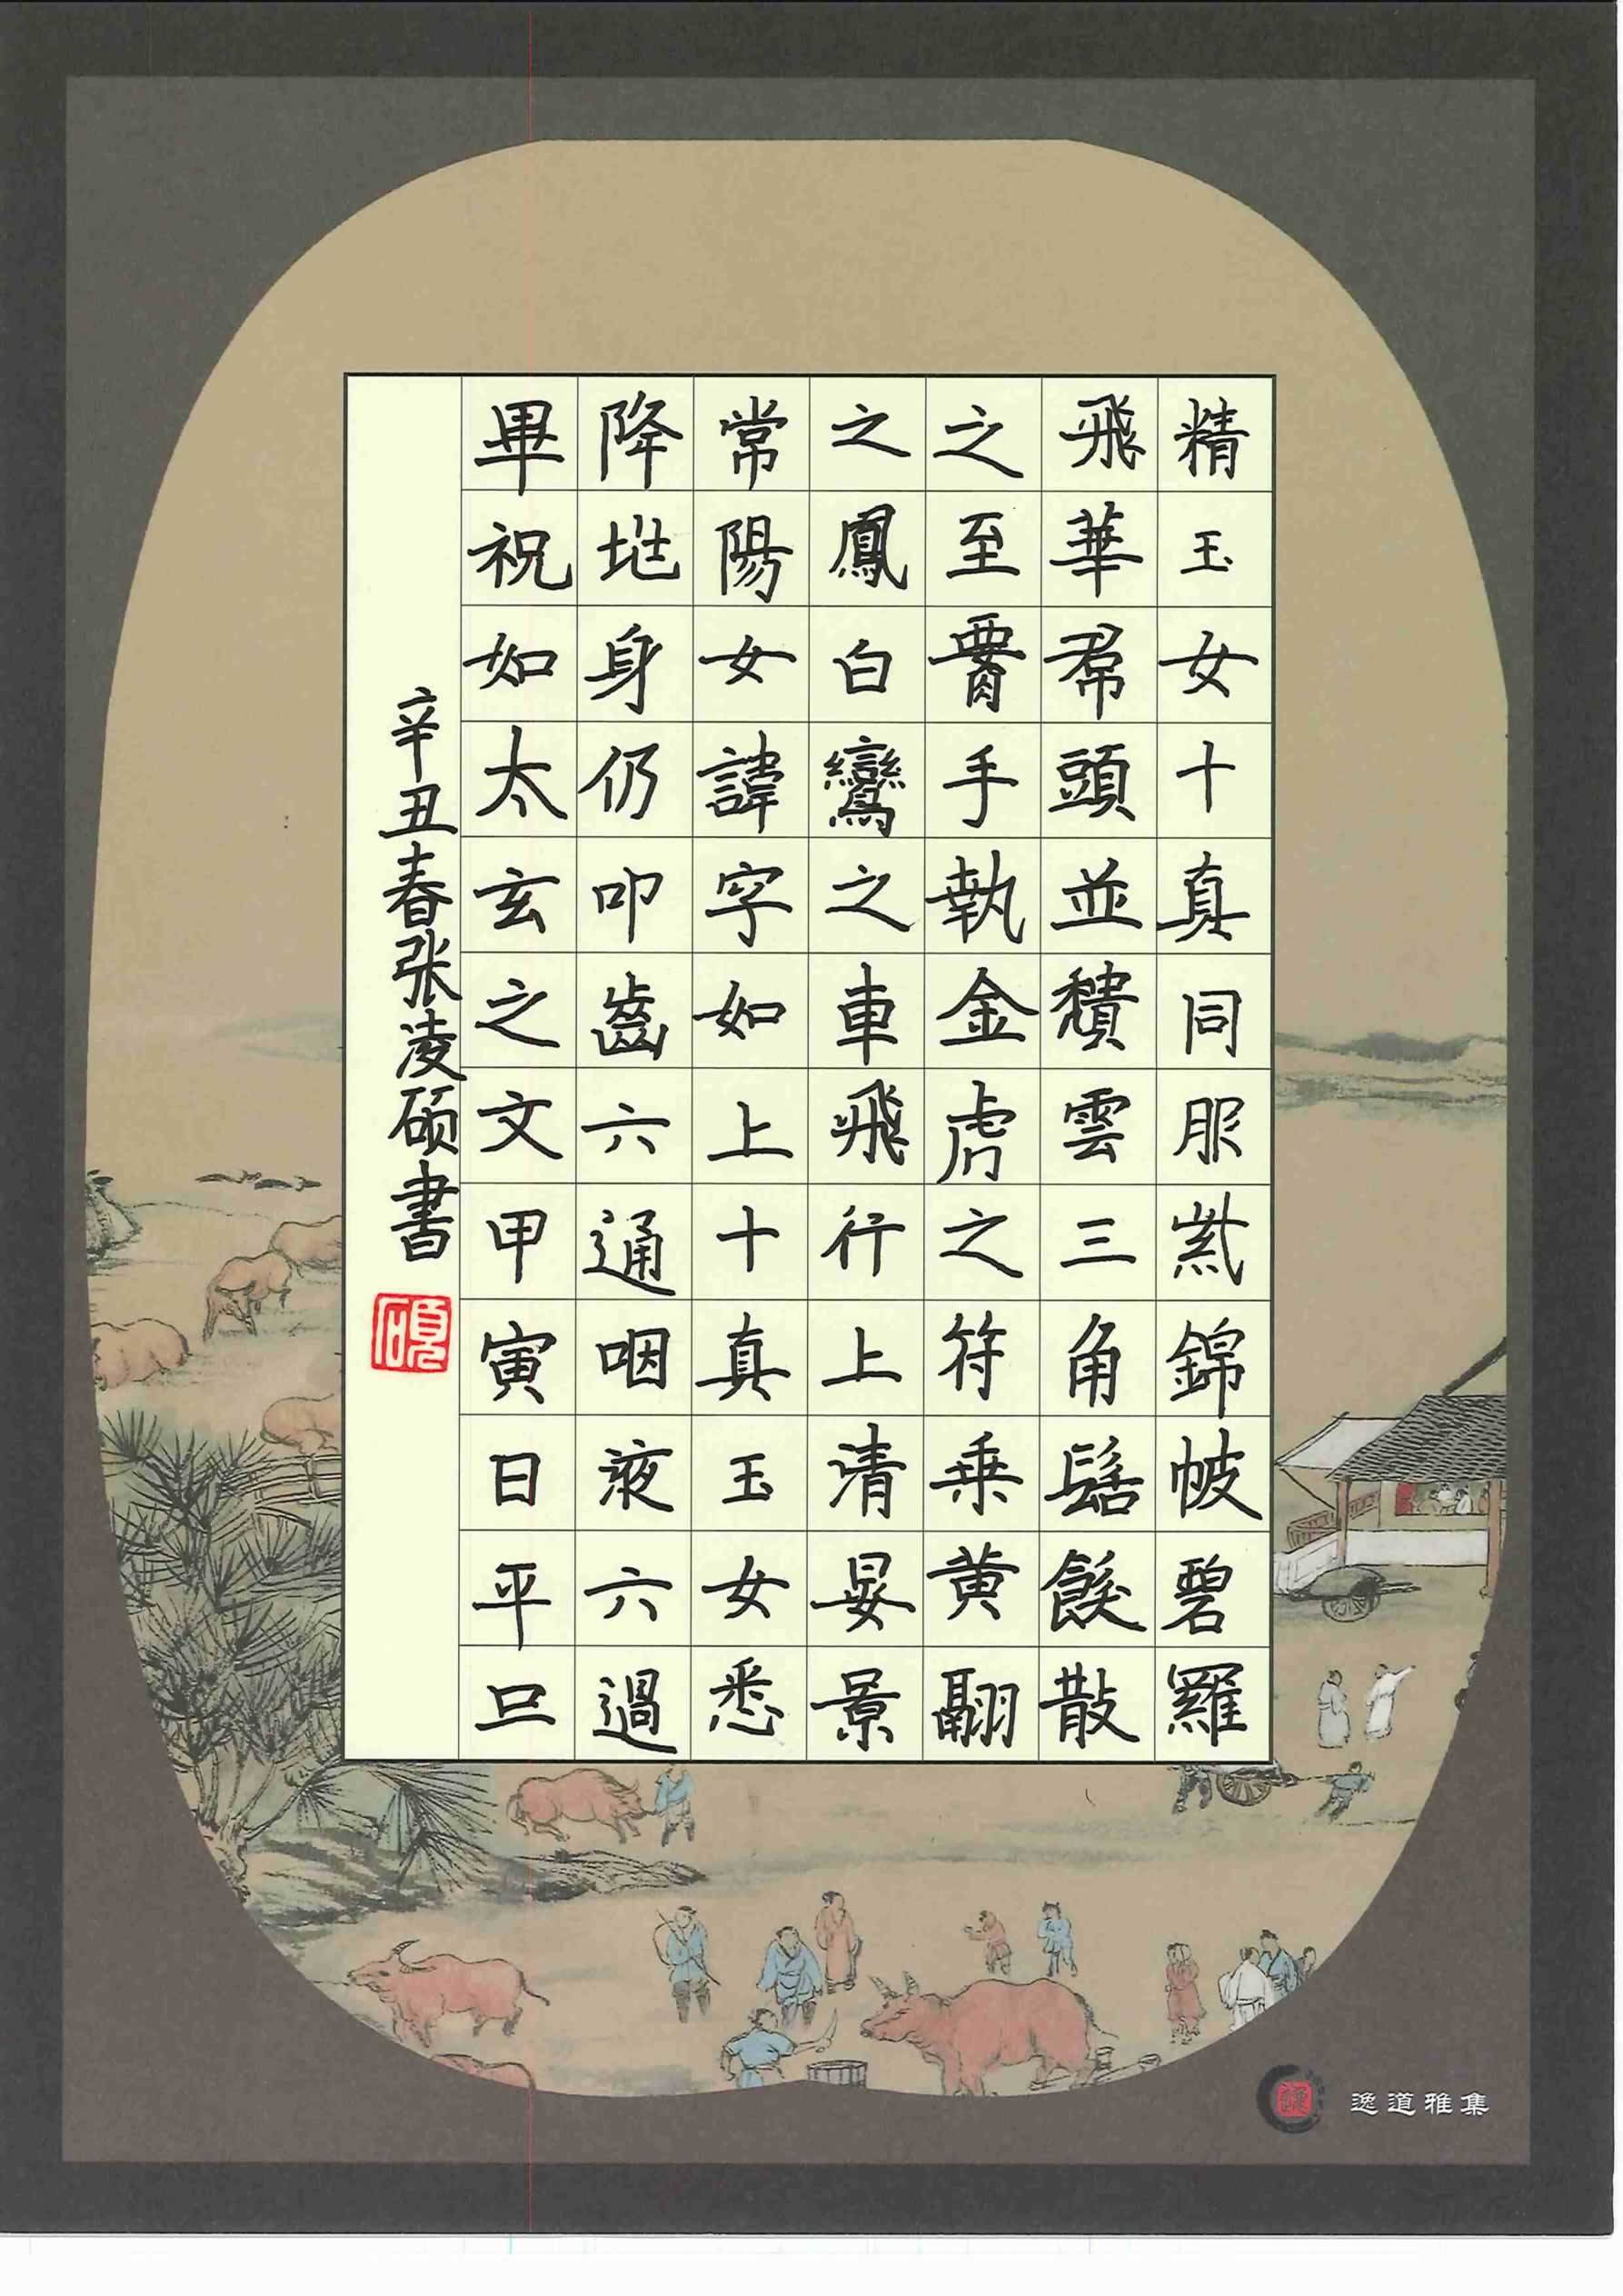 精玉女十真同服紫錦帔碧羅
飛華帬頭並穨雲三角髻餘散
之至臀手執金虎之符乗黄翮
之鳳白鸞之車飛行上清晏景
常陽女諱字如上十真玉女悉
降地身仍叩齒六通咽液六過
畢祝如太玄之文甲寅日平旦
辛丑春张凌硕書
硕
逸道雅集